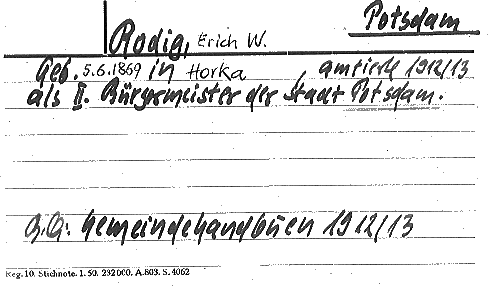 Potsdam
Rodig, Erich W.
Geb. 5.6.1869 in Horka, amtierte 1912/13
als II. Bürgermeister der Stadt Potsdam.
Gemeindehandbuch 1912/13
Reg. 10. Stichnote. 1. 50. 232000. A.803. S. 4062